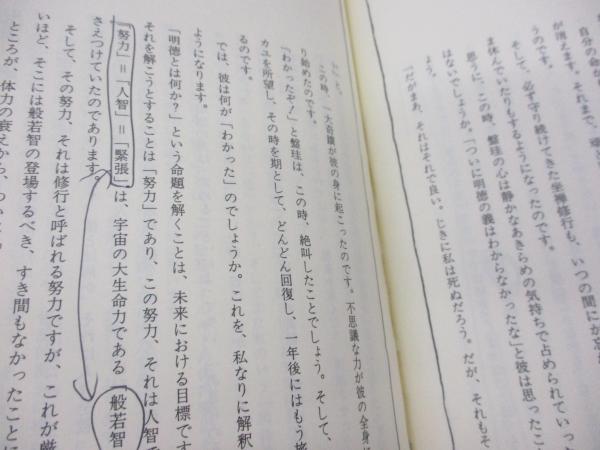 自分の命が
が消えます。それまで、
うのです。
そして、必ず守り続けてきた坐禅修行も、いつの間にか忘れ
ま休んでいたりもするようになったのです。
思うに、この時、盤珪の心は静かなあきらめの気持ちで占められていった
はないでしょうか。「ついに明徳の義はわからなかったな」と彼は思ったこ
ょう。
「だがまあ、それはそれで良い。じきに私は死ぬだろう。だが、それもそ
この時、一大奇蹟が彼の身に起こったのです。不思議な力が彼の全身に
り始めたのです。
「わかったぞ！」と盤珪は、この時、絶叫したことでしょう。そして、
カユを所望し、その時を期として、どんどん回復し、一年後にはもう旅
るのです。
では、彼は何が「わかった」のでしょうか。これを、私なりに解釈
ようになります。
「明徳とは何か？」という命題を解くことは、未来における目標です
それを解こうとすることは「努力」であり、この努力、それは人智で
「努力」＝「人智」＝「緊張」は、宇宙の大生命力である「般若智
さえつけていたのであります。
そして、その努力、それは修行と呼ばれる努力ですが、これが厳
いほど、そこには般若智の登場するべき、すき間もなかったことに
ところが、体力の衰えから、